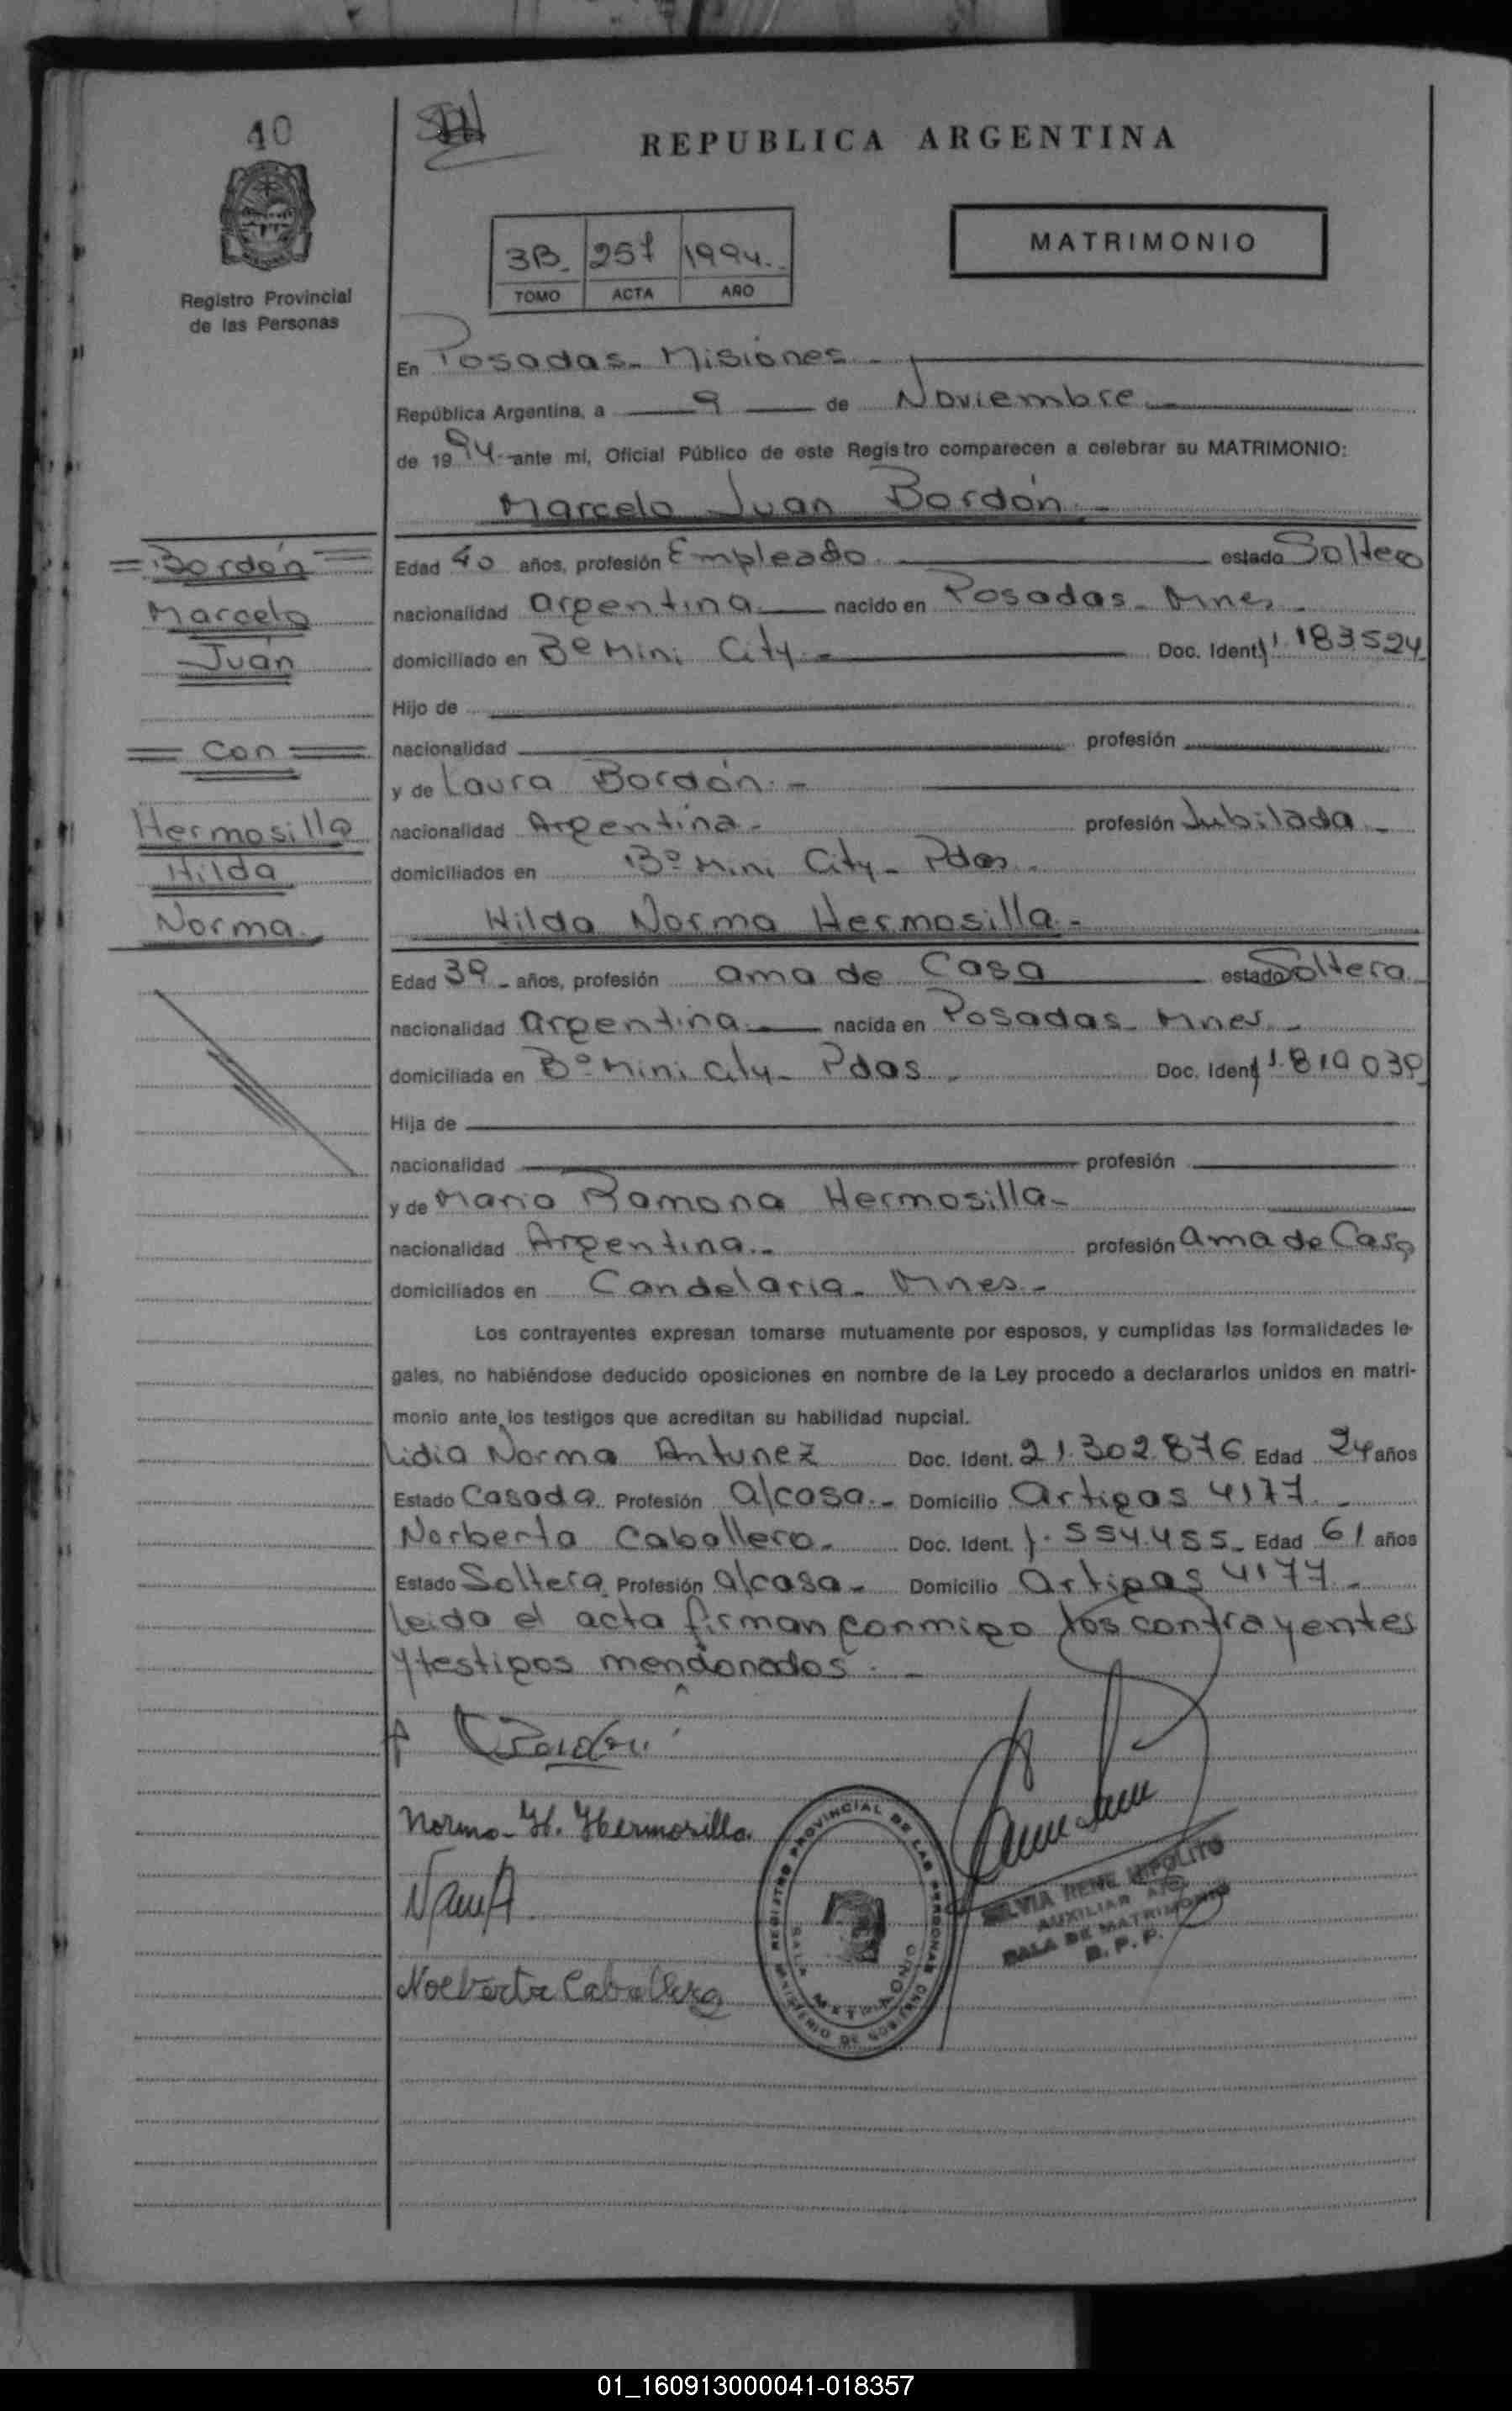 40
REPUBLICA ARGENTINA
3B. 257 1994.
TOMO ACTA AÑO
MATRIMONIO
Registro Provincial
de las Personas
En Posadas - Misiones -
República Argentina, a 9 de Noviembre -
de 1994 - ante mi, Oficial Público de este Registro comparecen a celebrar su MATRIMONIO:
Marcelo Juan Bordón -
= Bordón =
Marcelo
Juan
= Con =
Hermosilla
Hilda
Norma.
Edad 40 años, profesión Empleado. estado Soltero
nacionalidad argentina nacido en Posadas - Mnes -
domiciliado en Bº Mini City - Doc. Ident. 183524
Hijo de
nacionalidad profesión
y de Laura Bordón. -
nacionalidad Argentina - profesión Jubilada -
domiciliados en Bº Mini City - Pdas -
Hilda Norma Hermosilla -
Edad 39 - años, profesión ama de Casa estado Soltera
nacionalidad argentina nacida en Posadas - Mnes -
domiciliada en Bº Mini City - Pdas - Doc. Ident.
Hija de
nacionalidad profesión
y de Maria Ramona Hermosilla -
nacionalidad Argentina - profesión ama de Casa
domiciliados en Candelaria - Mnes -
Los contrayentes expresan tomarse mutuamente por esposos, y cumplidas las formalidades le-
gales, no habiéndose deducido oposiciones en nombre de la Ley procedo a declararlos unidos en matri-
monio ante los testigos que acreditan su habilidad nupcial.
Lidia Norma Antunez Doc. Ident. 21.302.876 Edad 24 años
Estado Casada Profesión a/casa. - Domicilio Artigas 4177 -
Norberta Caballero - Doc. Ident. 554.455 - Edad 61 años
Estado Soltera Profesión a/casa - Domicilio Artigas 4177 -
leida el acta firman conmigo los contrayentes
y testigos mencionados. -
Bordón
Norma - H. Hermosilla.
Norberta Caballero
REGISTRO PROVINCIAL DE LAS PERSONAS
MINISTERIO DE GOBIERNO
SILVIA RENE HIPOLITO
AUXILIAR
SALA DE MATRIMONIO
R. P. P.
01_160913000041-018357